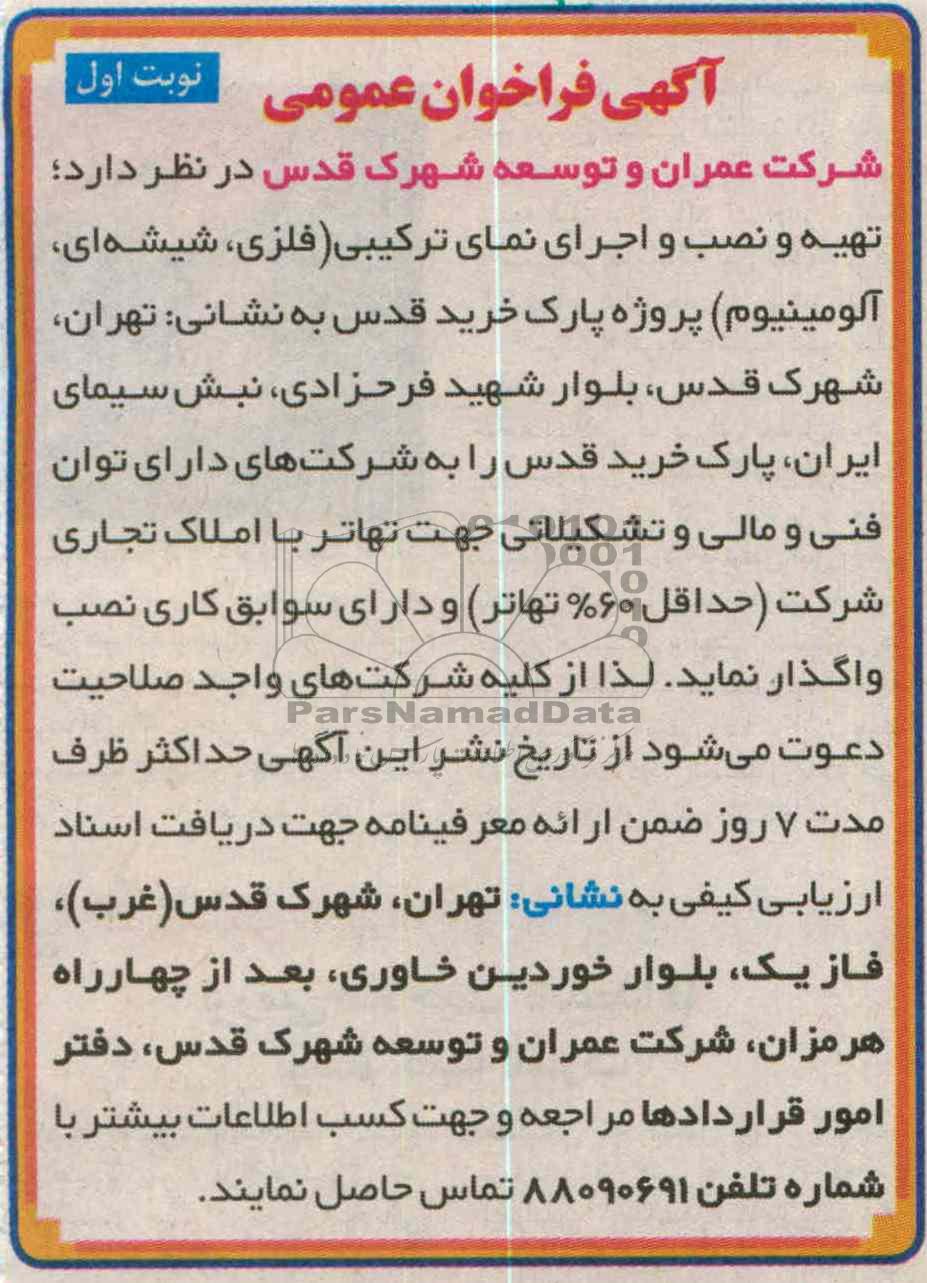 آگهی فراخوان عمومی
نوبت اول
شرکت عمران و توسعه شهرک قدس در نظر دارد؛
تهیه و نصب و اجرای نمای ترکیبی(فلزی، شیشه‌ای،
آلومینیوم) پروژه پارک خرید قدس به نشانی: تهران،
شهرک قدس، بلوار شهید فرحزادی، نبش سیمای
ایران، پارک خرید قدس را به شرکت‌های دارای توان
فنی و مالی و تشکیلاتی جهت تهاتر با املاک تجاری
شرکت (حداقل ۶۰% تهاتر) و دارای سوابق کاری نصب
واگذار نماید. لذا از کلیه شرکت‌های واجد صلاحیت
ParsNamadData
دعوت می‌شود از تاریخ نشر این آگهی حداکثر ظرف
مدت ۷ روز ضمن ارائه معرفینامه جهت دریافت اسناد
ارزیابی کیفی به نشانی: تهران، شهرک قدس(غرب)،
فاز یک، بلوار خوردین خاوری، بعد از چهارراه
هرمزان، شرکت عمران و توسعه شهرک قدس، دفتر
امور قراردادها مراجعه و جهت کسب اطلاعات بیشتر با
شماره تلفن ۸۸۰۹۰۶۹۱ تماس حاصل نمایند.